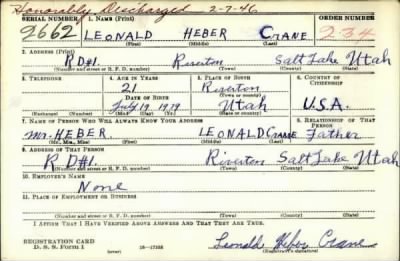 Honorably Discharged 2-7-46
SERIAL NUMBER 1. NAME (Print) ORDER NUMBER
2662 LEONALD HEBER CRANE 234
(First) (Middle) (Last)
2. ADDRESS (Print)
RD#1. Riverton Salt Lake Utah
(Number and street or R. F. D. number) (Town) (County) (State)
3. TELEPHONE 4. AGE IN YEARS 5. PLACE OF BIRTH 6. COUNTRY OF CITIZENSHIP
21 Riverton
DATE OF BIRTH (Town or county)
July 19 1919 Utah U.S.A.
(Exchange) (No.) (Mo.) (Day) (Yr.) (State or country)
7. NAME OF PERSON WHO WILL ALWAYS KNOW YOUR ADDRESS 8. RELATIONSHIP OF THAT PERSON
Mr. HEBER LEONALD Crane Father
(Mr., Mrs., Miss) (First) (Middle) (Last)
9. ADDRESS OF THAT PERSON
RD#1. Riverton Salt Lake Utah
(Number and street or R. F. D. number) (Town) (County) (State)
10. EMPLOYER'S NAME
None
11. PLACE OF EMPLOYMENT OR BUSINESS
(Number and street or R. F. D. number) (Town) (County) (State)
I AFFIRM THAT I HAVE VERIFIED ABOVE ANSWERS AND THAT THEY ARE TRUE.
REGISTRATION CARD
D. S. S. Form 1 (over) 16-17105 Leonald Heber Crane
(Registrant's signature)